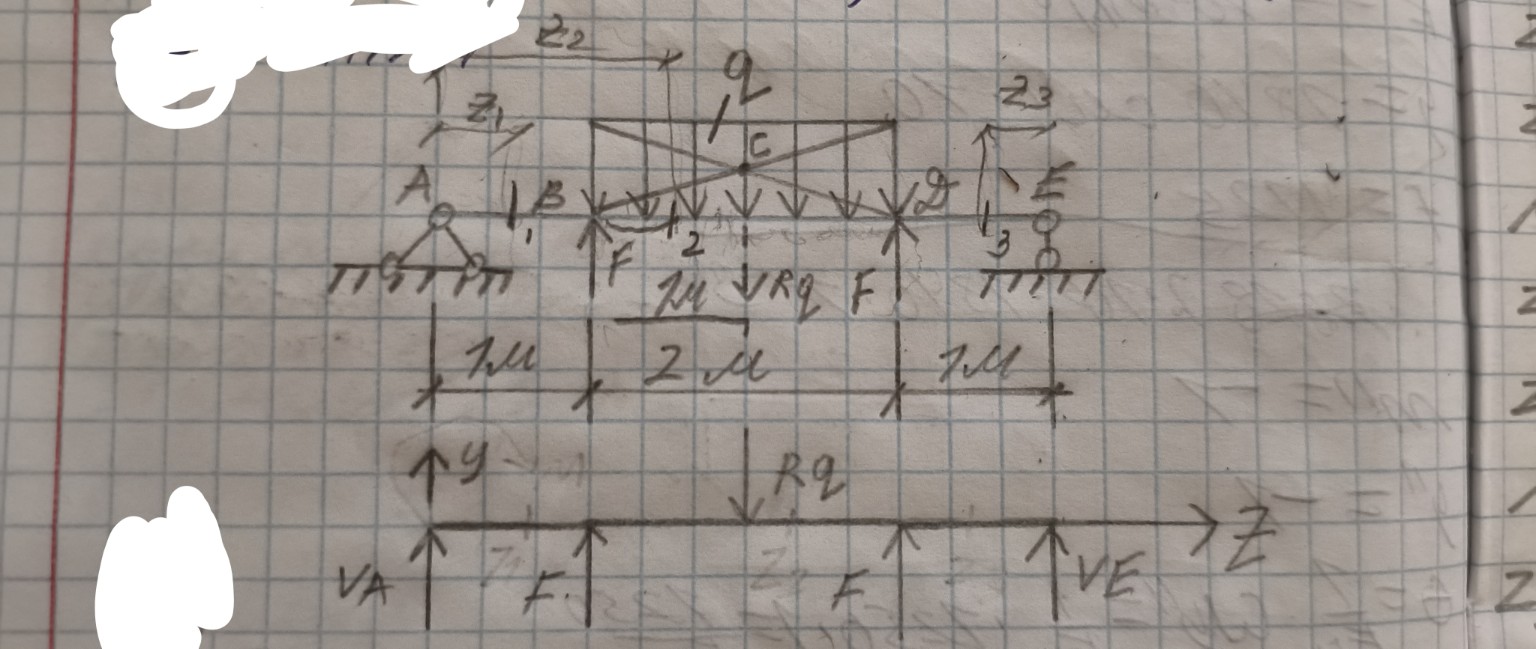 Z2
q
Z1
Z3
C
A
B
D
E
1
2
3
F
1м
Rq
F
1м
2м
1м
y
Rq
Z
VA
F
F
VE